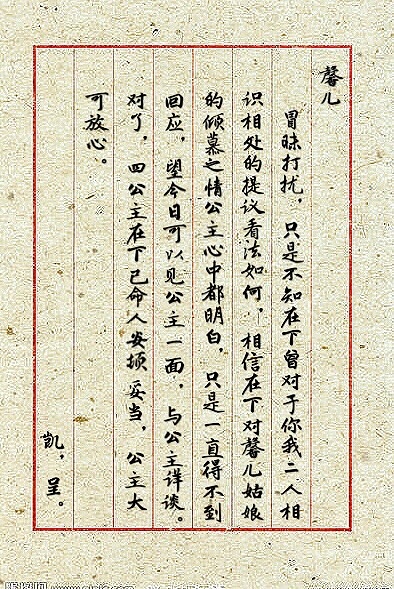 馨儿
冒昧打扰，只是不知在下曾对于你我二人相
识相处的提议看法如何，相信在下对馨儿姑娘
的倾慕之情公主心中都明白，只是一直得不到
回应，望今日可以见公主一面，与公主详谈。
对了，四公主在下已命人安顿妥当，公主大
可放心。
凯，呈。